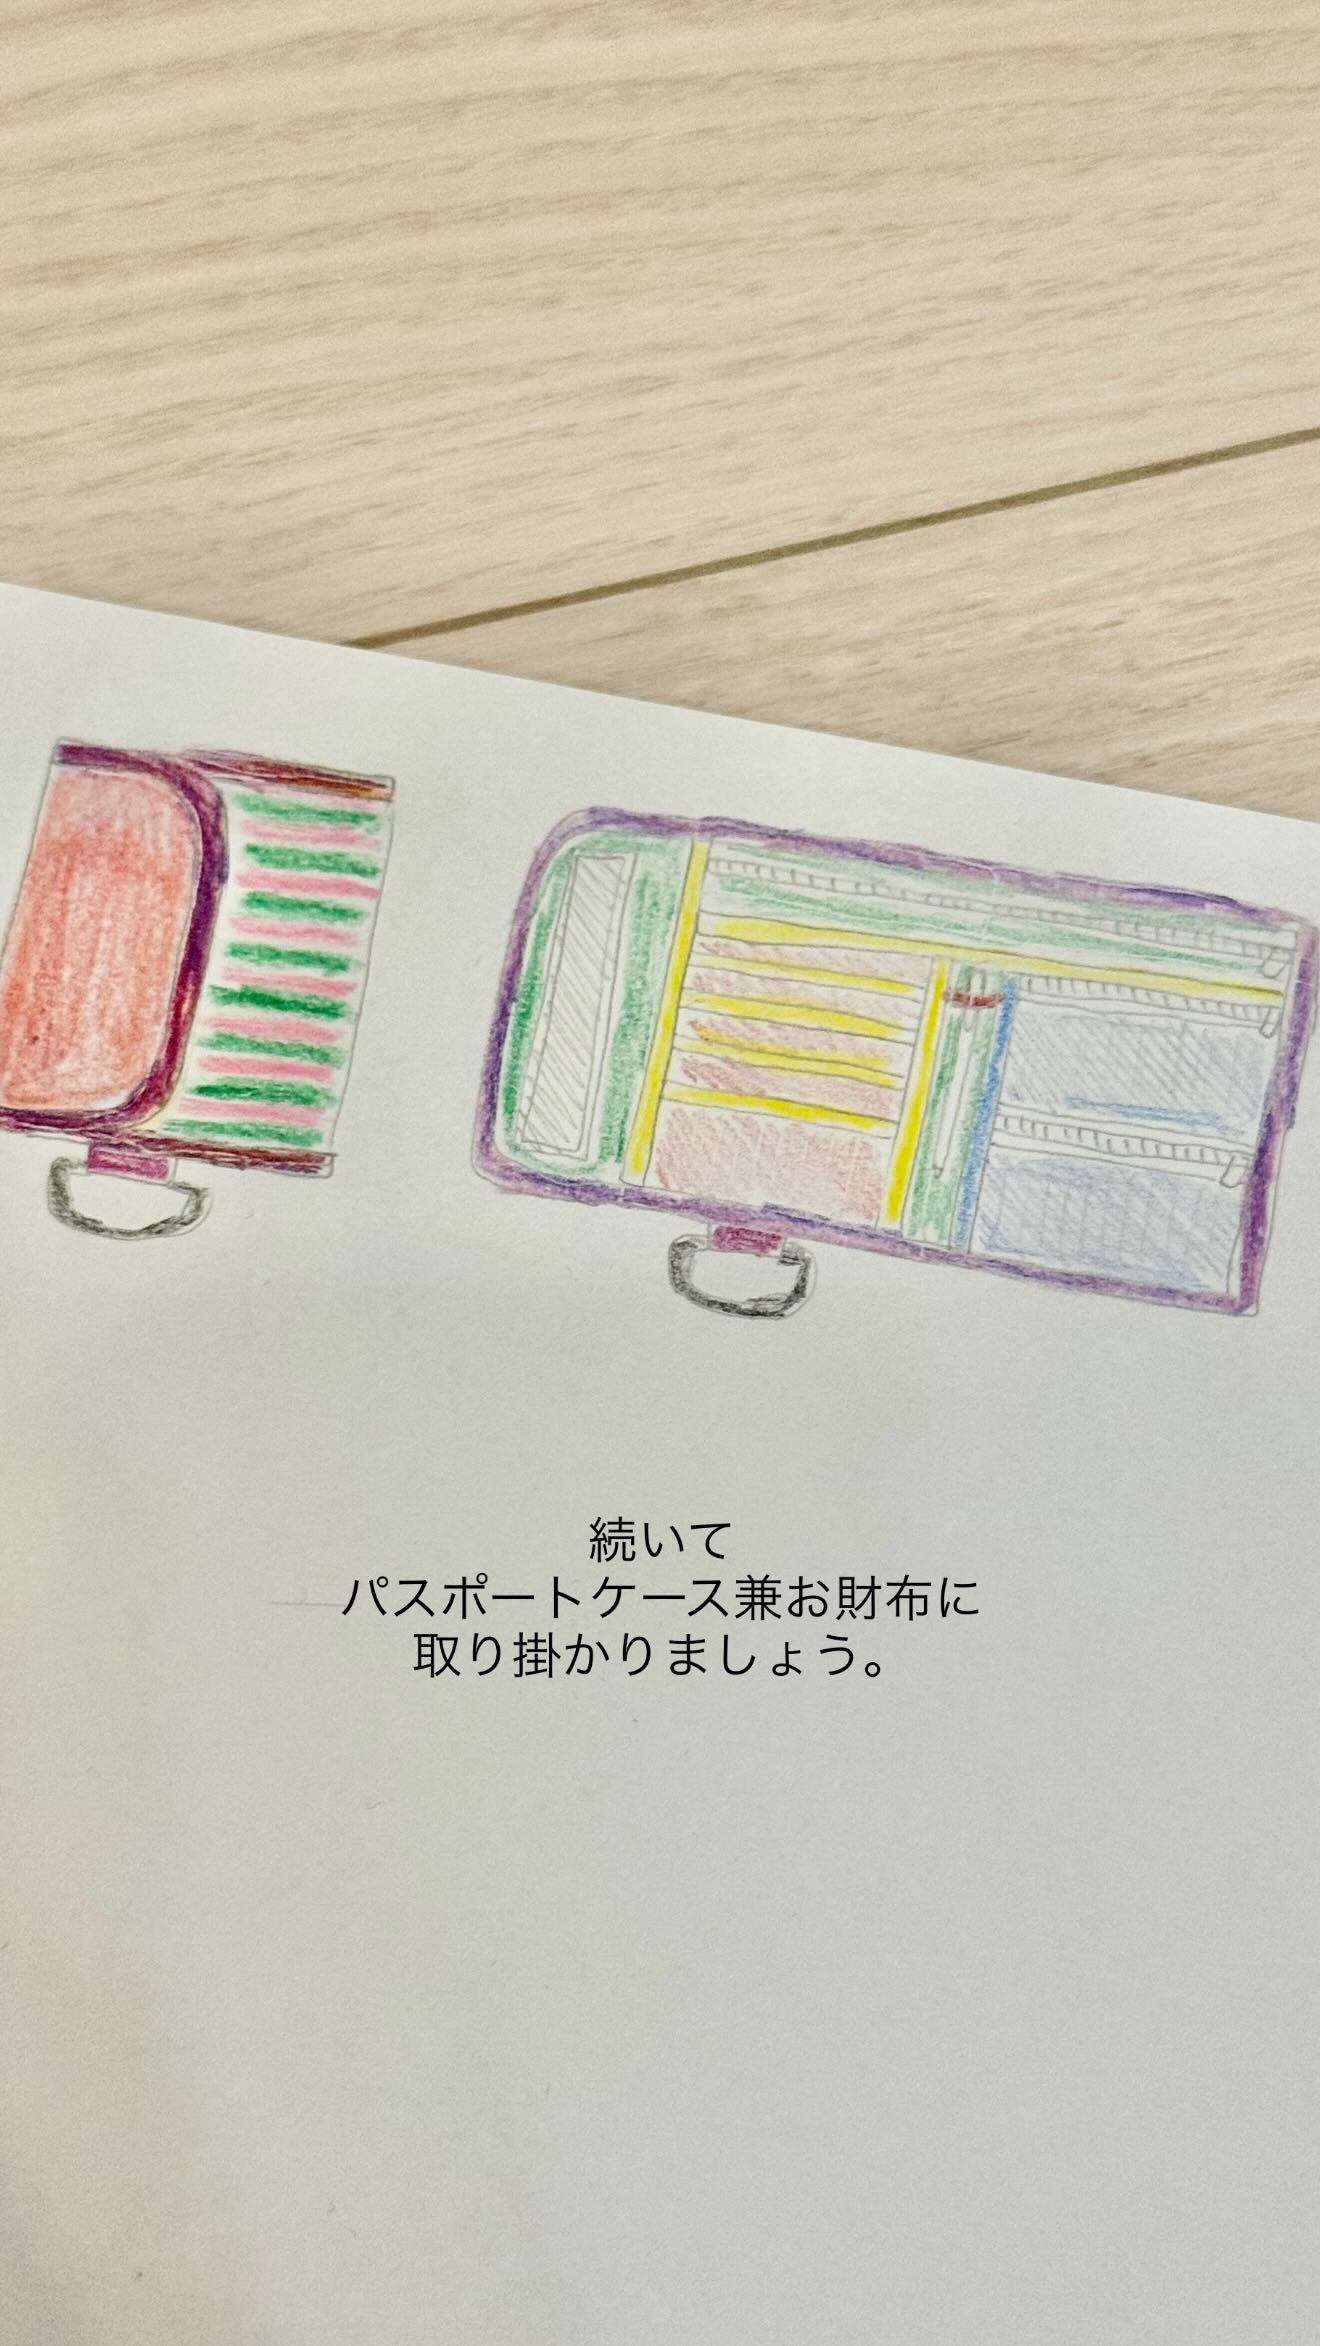 続いて
パスポートケース兼お財布に
取り掛かりましょう。